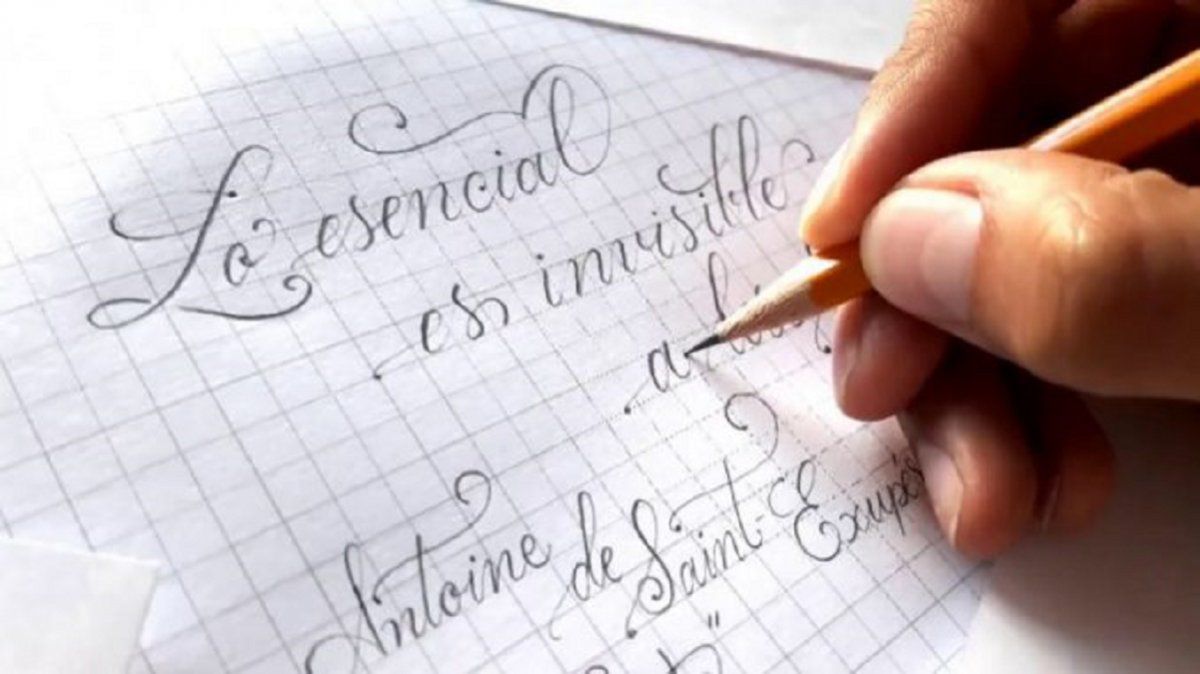 Lo esencial
es invisible
a
Antoine de Saint-Exupé